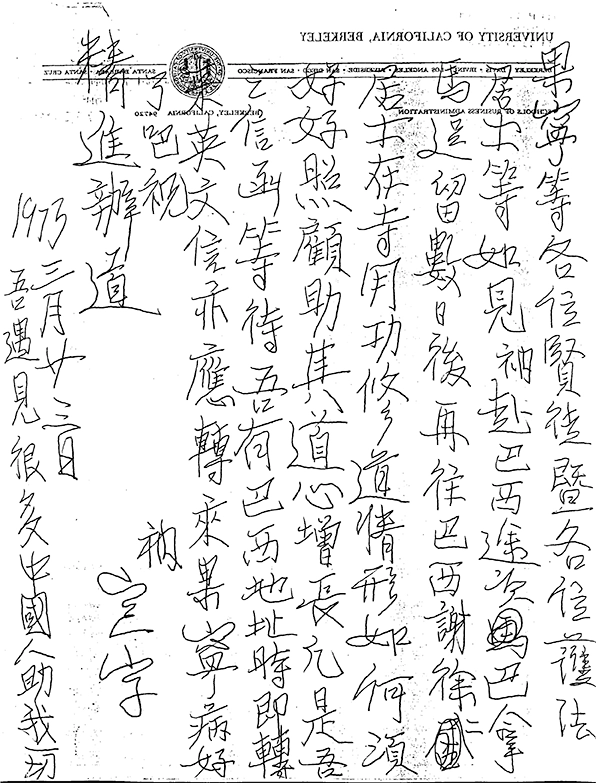 UNIVERSITY OF CALIFORNIA, BERKELEY
BERKELEY • DAVIS • IRVINE • LOS ANGELES • RIVERSIDE • SAN DIEGO • SAN FRANCISCO
SANTA BARBARA • SANTA CRUZ
SCHOOLS OF BUSINESS ADMINISTRATION
BERKELEY, CALIFORNIA 94720
果寧等各位賢徒暨各位護法
居士等如見衲赴巴西途次巴拿
馬逗留數日後再往巴西謝徐二
居士在寺用功修道情形如何須
好好照顧助其道心增長凡是吾
之信函等待吾有巴西地址時即轉
來英文信亦應轉來果寧病好
了吧祝
精進辦道
衲 宣字
1973 三月廿三日
吾遇見很多中國人助我一切